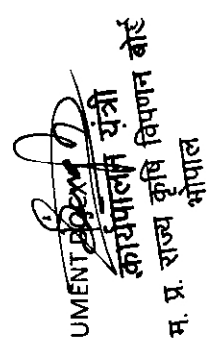 UMENT
कार्यपालन यंत्री
म. प्र. राज्य कृषि विपणन बोर्ड
भोपाल